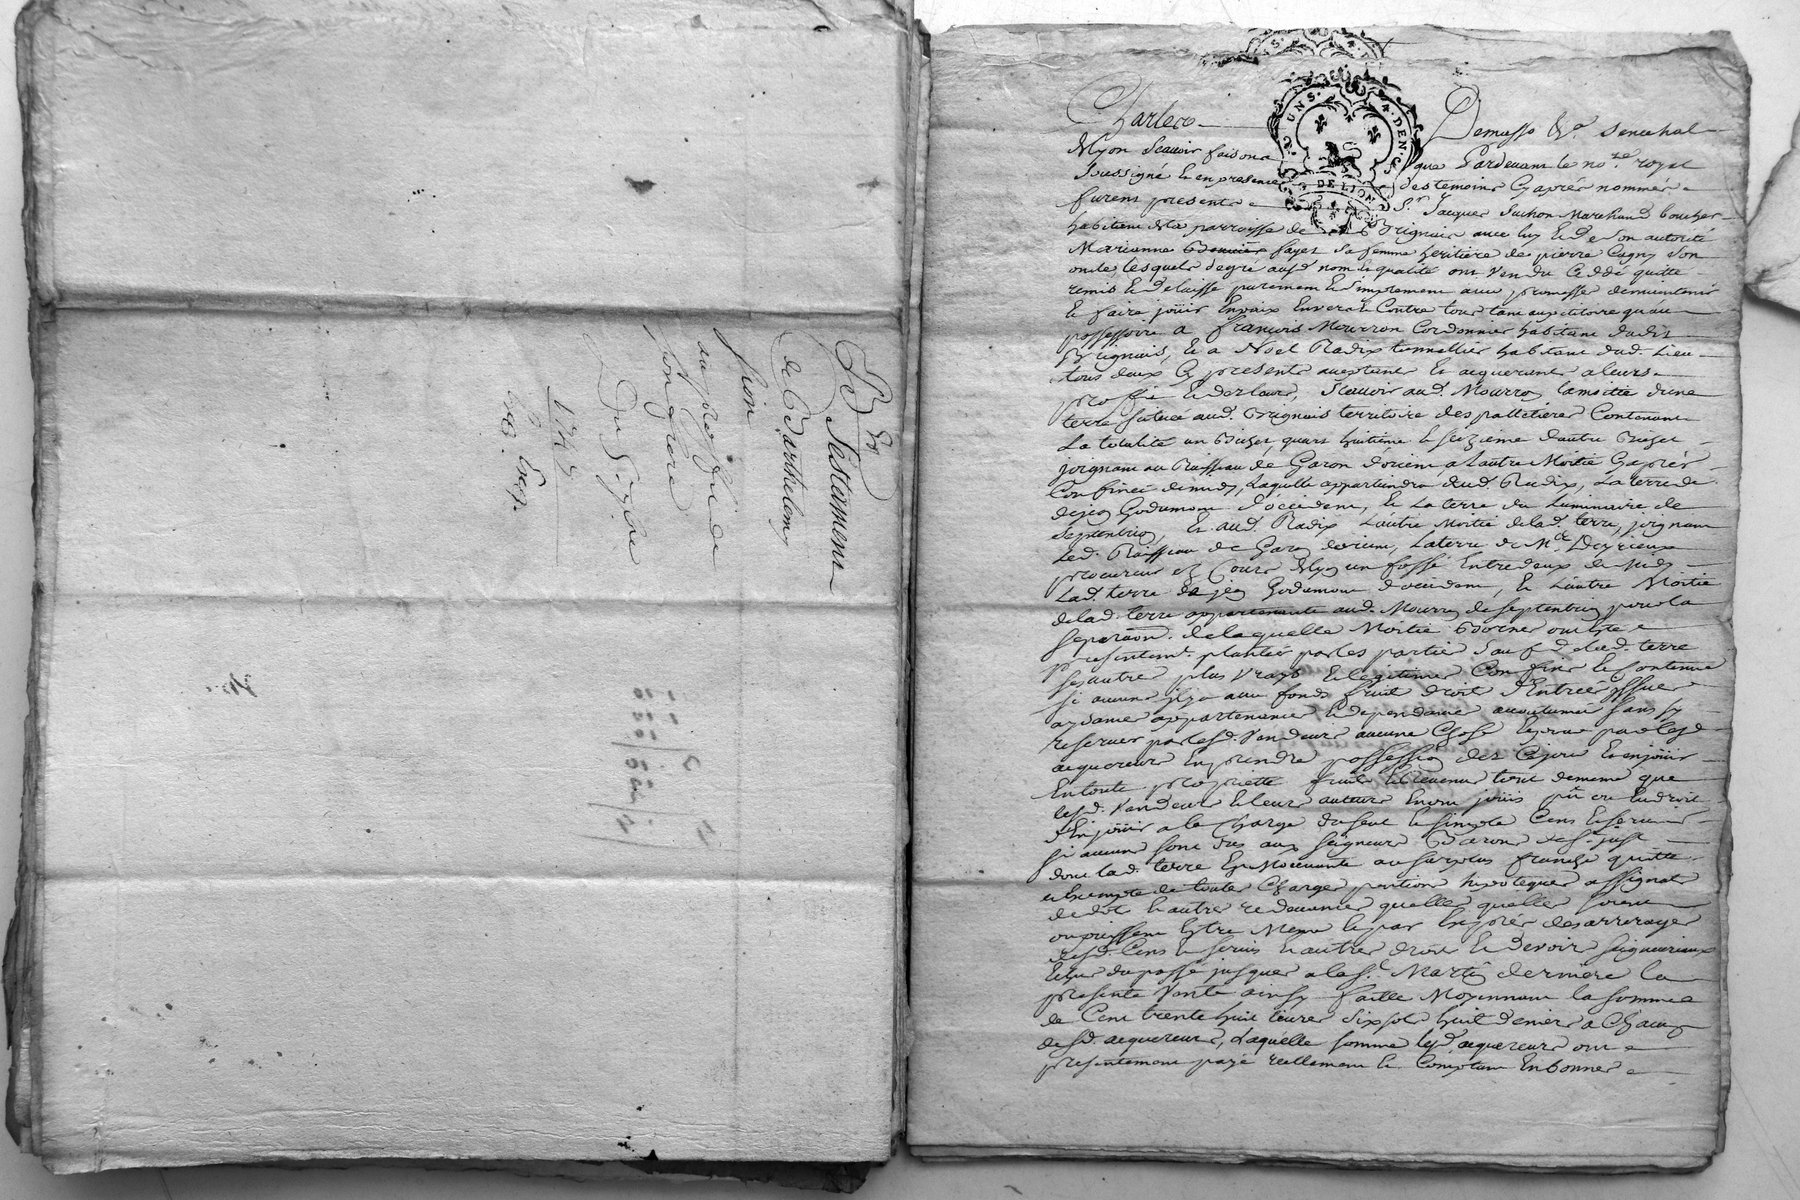 Testament
de Barthelemy
fion
au profit de
son frere
1747
UNS. 4. DEN.
DE LION
Charles Demasso Sr. senechal
delyon scavoir faisons que Pardevant le nore. royal
soussigné et en presence des temoins cy aprés nommés
furent presents Sr. Jacques Suchon Marchand boucher
habitant de la parroisse de Brignais avec luy et de son autorité
Marianne fayet sa femme heritiere de pierre Cugny son
oncle, lesquels degré ausd. nom et qualité ont Vendu Ceddé quitté
remis et delaissé purement et simplement avec promesse de maintenir
et faire jouir En paix Envers et Contre tous tant au petitoire qu'au
possessoire a françois Mourron Cordonnier habitant dudit
Brignais, et a Noel Radix tonnellier habitant dud. Lieu
tous deux cy presents acceptants et acquerants a leurs
proffit et des leurs, Scavoir aud. Mourron la moitié d'une
terre située aud. Brignais territoire des palletieres Contenant
La totalité un Bichet quart huitiéme et seiziéme d'autre Bichet
joignant au Ruisseau de Garon d'orient a L'autre Moitié Cy aprés
Confinée de midy, Laquelle appartiendra aud. Radix, La terre de
dejean Godemont d'occident, et La terre du Luminaire de
septentrion, Et aud. Radix L'autre Moitié de lad. terre, joignant
Led. Ruisseau de Garon d'orient, La terre de Me. Deyrieux
procureur ez Cours de Lyon un fossé Entre deux de Midy
Lad. terre de jean Godemont d'occident, et L'autre Moitié
de lad. terre appartenante aud. Mourron de septentrion pour la
separaon. de laquelle Moitié Bornes ont été
presentemt. plantés par les parties Sauf de lad. terre
ses autres plus Vrays et legitimes Confins et Contenue
si aucuns il y a avec fonds fruits droits D'Entrées issues
aysances appartenances et dependances accoutumés sans sy
reserver par lesd. Vendeurs aucune Chose Et pour par lesd.
acquereurs En prendre possession dez Cejourd. Et en jouir
En toute proprietté fruits et revenus tout de meme que
lesd. Vendeurs et leurs auteurs En ont jouis pû ou eu droit
d'En jouir a la Charge du seul et simple Cens et servis
si aucuns sont dus aux seigneurs Barons de St. just
dont lad. terre Est Mouvante au surplus franche quitte
et Exempte de toutes Charges pentions hipoteques assignats
de dot et autres redevances quelles quelles soient
ou puissent Estre Meme et par Exprés des arrerages
desd. Cens et servis et autres droits et devoirs seigneuriaux
Echus du passé jusques a la St. Martin derniere la
presente Vente ainsy faitte Moyennant la somme
de Cent trente huit livres Six sols huit deniers a Chacun
desd. acquereurs, Laquelle somme lesd. acquereurs ont
presentement payé reellement et Comptant En bonnes